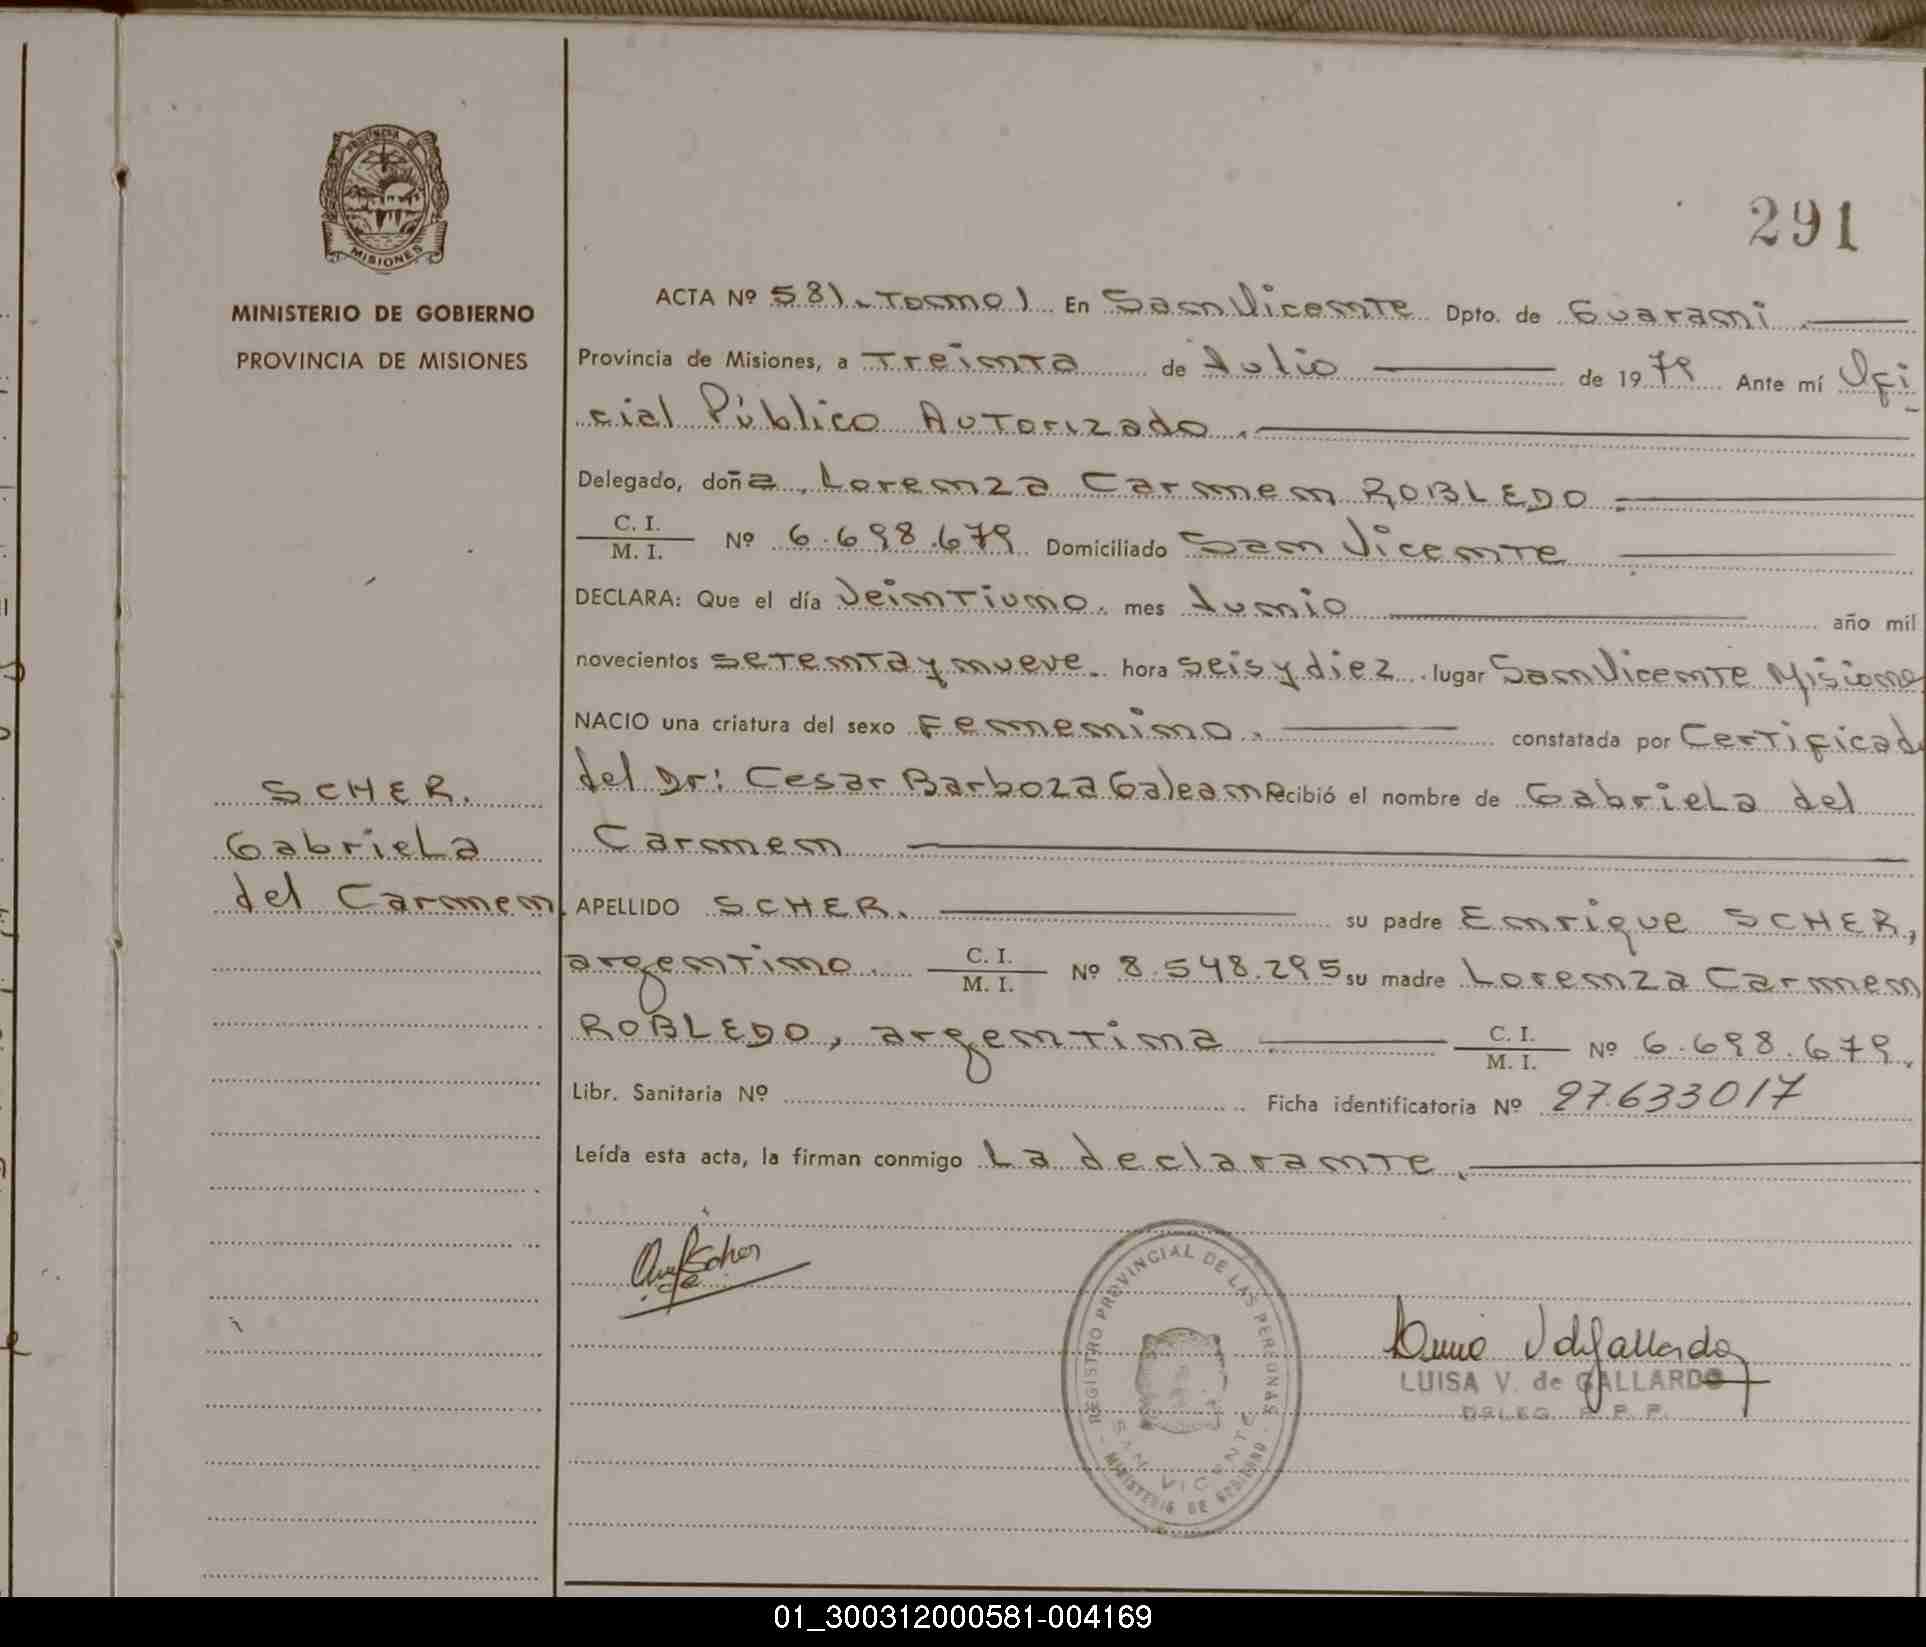 PROVINCIA DE
MISIONES
MINISTERIO DE GOBIERNO
PROVINCIA DE MISIONES
SCHER.
Gabriela
del Carmen
291
ACTA Nº 581 - Tomo I En San Vicente Dpto. de Guarani.
Provincia de Misiones, a Treinta de Julio de 1979 Ante mí Ofi
cial Público Autorizado.
Delegado, doña Lorenza Carmen ROBLEDO.
C. I.
M. I. Nº 6.698.679 Domiciliado San Vicente
DECLARA: Que el día Veintiuno. mes Junio año mil
novecientos setenta y nueve. hora seis y diez. lugar San Vicente Misione
NACIO una criatura del sexo Femenino. constatada por Certificado
del Dr: Cesar Barboza Galeano recibió el nombre de Gabriela del
Carmen
APELLIDO SCHER. su padre Enrique SCHER,
argentino. C. I. M. I. Nº 8.548.295 su madre Lorenza Carmen
ROBLEDO, argentina C. I. M. I. Nº 6.698.679.
Libr. Sanitaria Nº Ficha identificatoria Nº 27.633017
Leída esta acta, la firman conmigo La declarante.
REGISTRO PROVINCIAL DE LAS PERSONAS
SAN VICENTE
MINISTERIO DE GOBIERNO
LUISA V. de GALLARDO
DELEG. R. P. P.
01_300312000581-004169